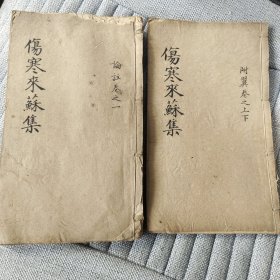 傷寒來蘇集
論註卷之一
傷寒來蘇集
附翼卷之上下